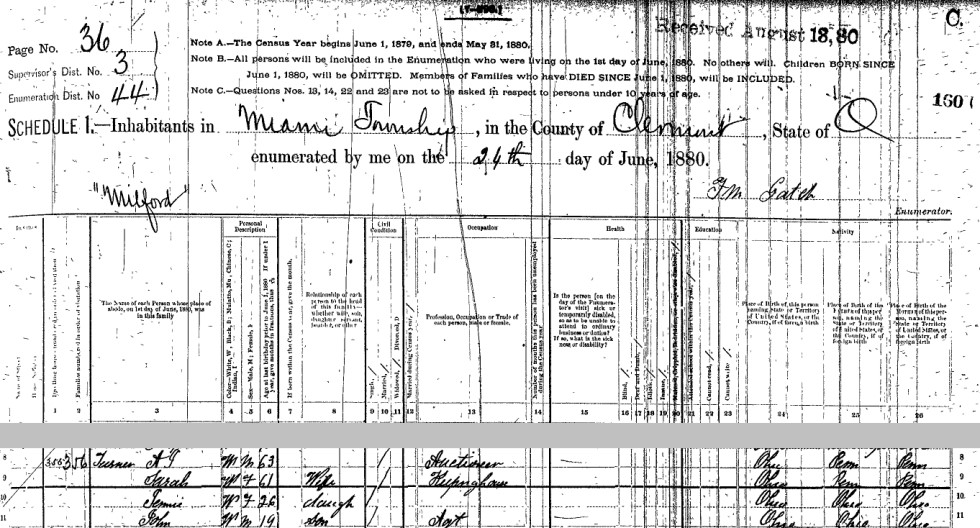 C.
Received August 18, 80
Page No. 36
Supervisor's Dist. No. 3
Enumeration Dist. No 44
Note A.—The Census Year begins June 1, 1879, and ends May 31, 1880.
Note B.—All persons will be included in the Enumeration who were living on the 1st day of June, 1880. No others will. Children BORN SINCE
June 1, 1880, will be OMITTED. Members of Families who have DIED SINCE June 1, 1880, will be INCLUDED.
Note C.—Questions Nos. 13, 14, 22 and 23 are not to be asked in respect to persons under 10 years of age.
160
SCHEDULE 1.—Inhabitants in Miami Township, in the County of Clermont, State of O
enumerated by me on the 24th day of June, 1880.
"Milford"
F.M. Gatch
Enumerator.
Personal Description
Civil Condition
Occupation
Health
Education
Nativity
The Name of each Person whose place of abode, on 1st day of June, 1880, was in this family
Color—White, W; Black, B; Mulatto, Mu; Chinese, C; Indian, I
Sex—Male, M; Female, F
Age at last birthday prior to June 1, 1880. If under 1 year, give months in fractions, thus
If born within the Census year, give the month.
Relationship of each person to the head of this family—whether wife, son, daughter, servant, boarder, or other
Single, /
Married, /
Widowed, / Divorced, D
Married during Census year
Profession, Occupation or Trade of each person, male or female.
Number of months this person has been unemployed during the Census year
Is the person [on the day of the Enumerator's visit] sick or temporarily disabled, so as to be unable to attend to ordinary business or duties? If so, what is the sickness or disability?
Blind, /
Deaf and Dumb, /
Idiotic, /
Insane, /
Cannot read, /
Cannot write, /
Place of Birth of this person naming State or Territory of United States, or the Country, if of foreign birth
Place of Birth of the Father of this person, naming the State or Territory of United States, or the Country, if of foreign birth
Place of Birth of the Mother of this person, naming the State or Territory of United States, or the Country, if of foreign birth
1 2 3 4 5 6 7 8 9 10 11 12 13 14 15 16 17 18 19 20 21 22 23 24 25 26
8 356 Turner A G W M 63 / Auctioneer Ohio Penn Penn 8
9 Sarah W F 61 Wife / Keeping house Ohio Penn Penn 9
10 Jennie W F 26 daugh / Ohio Ohio Ohio 10
11 John W M 19 son / Agt Ohio Ohio Ohio 11